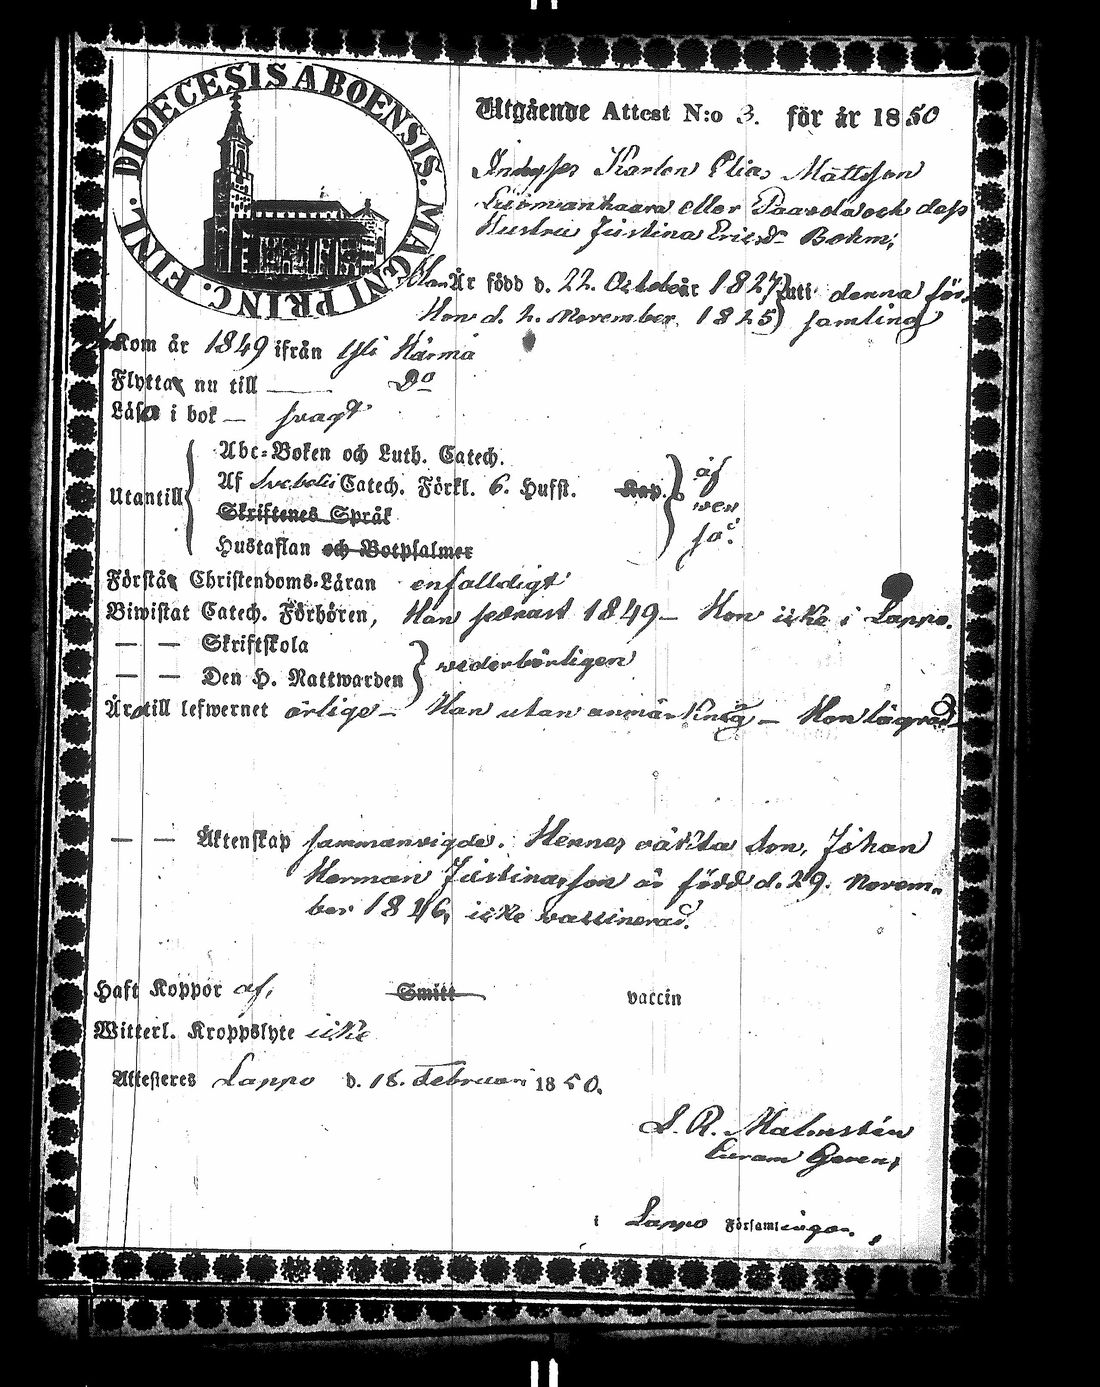 DIOECESIS ABOENSIS. MAGNI PRINC. FINL.
Utgående Attest N:o 3. för år 1850
Inhyses Karlen Elias Mattsson
Luomankaara eller Paavola och dess
Hustru Justina Ericsdr Bohm;
Han Är född d. 22. October år 1827 uti denna för,
Hon d. 2. November 1825 samling
Kom år 1849 ifrån Yli Härmä
Flytta nu till — Do
Läser i bok — svagt
Abc-Boken och Luth. Catech.
Utantill Af Svebelii Catech. Förkl. 6. Hufst. Kap. af
Skriftenes Språk
Hustaflan och Botpsalmer
Förstå Christendoms-Läran enfalldigt
Biwistat Catech. Förhören, Han senast 1849 — Hon icke i Lappo.
— — Skriftskola
— — Den H. Nattwarden wederbörligen
Äro till lefwernet ärlige — Han utan anmärkning — Hon lägrad
— — Äktenskap sammanvigde. Hennes oäkta son, Johan
Herman Justinasson är född d. 29. Novem-
ber 1846, icke vaccinerad.
Haft Koppor af, Smitt vaccin
Witterl. Kroppslyte icke
Attesteres Lappo d. 18. Februari 1850.
L. R. Malmstén
Curam Gerens
i Lappo Församlingar.